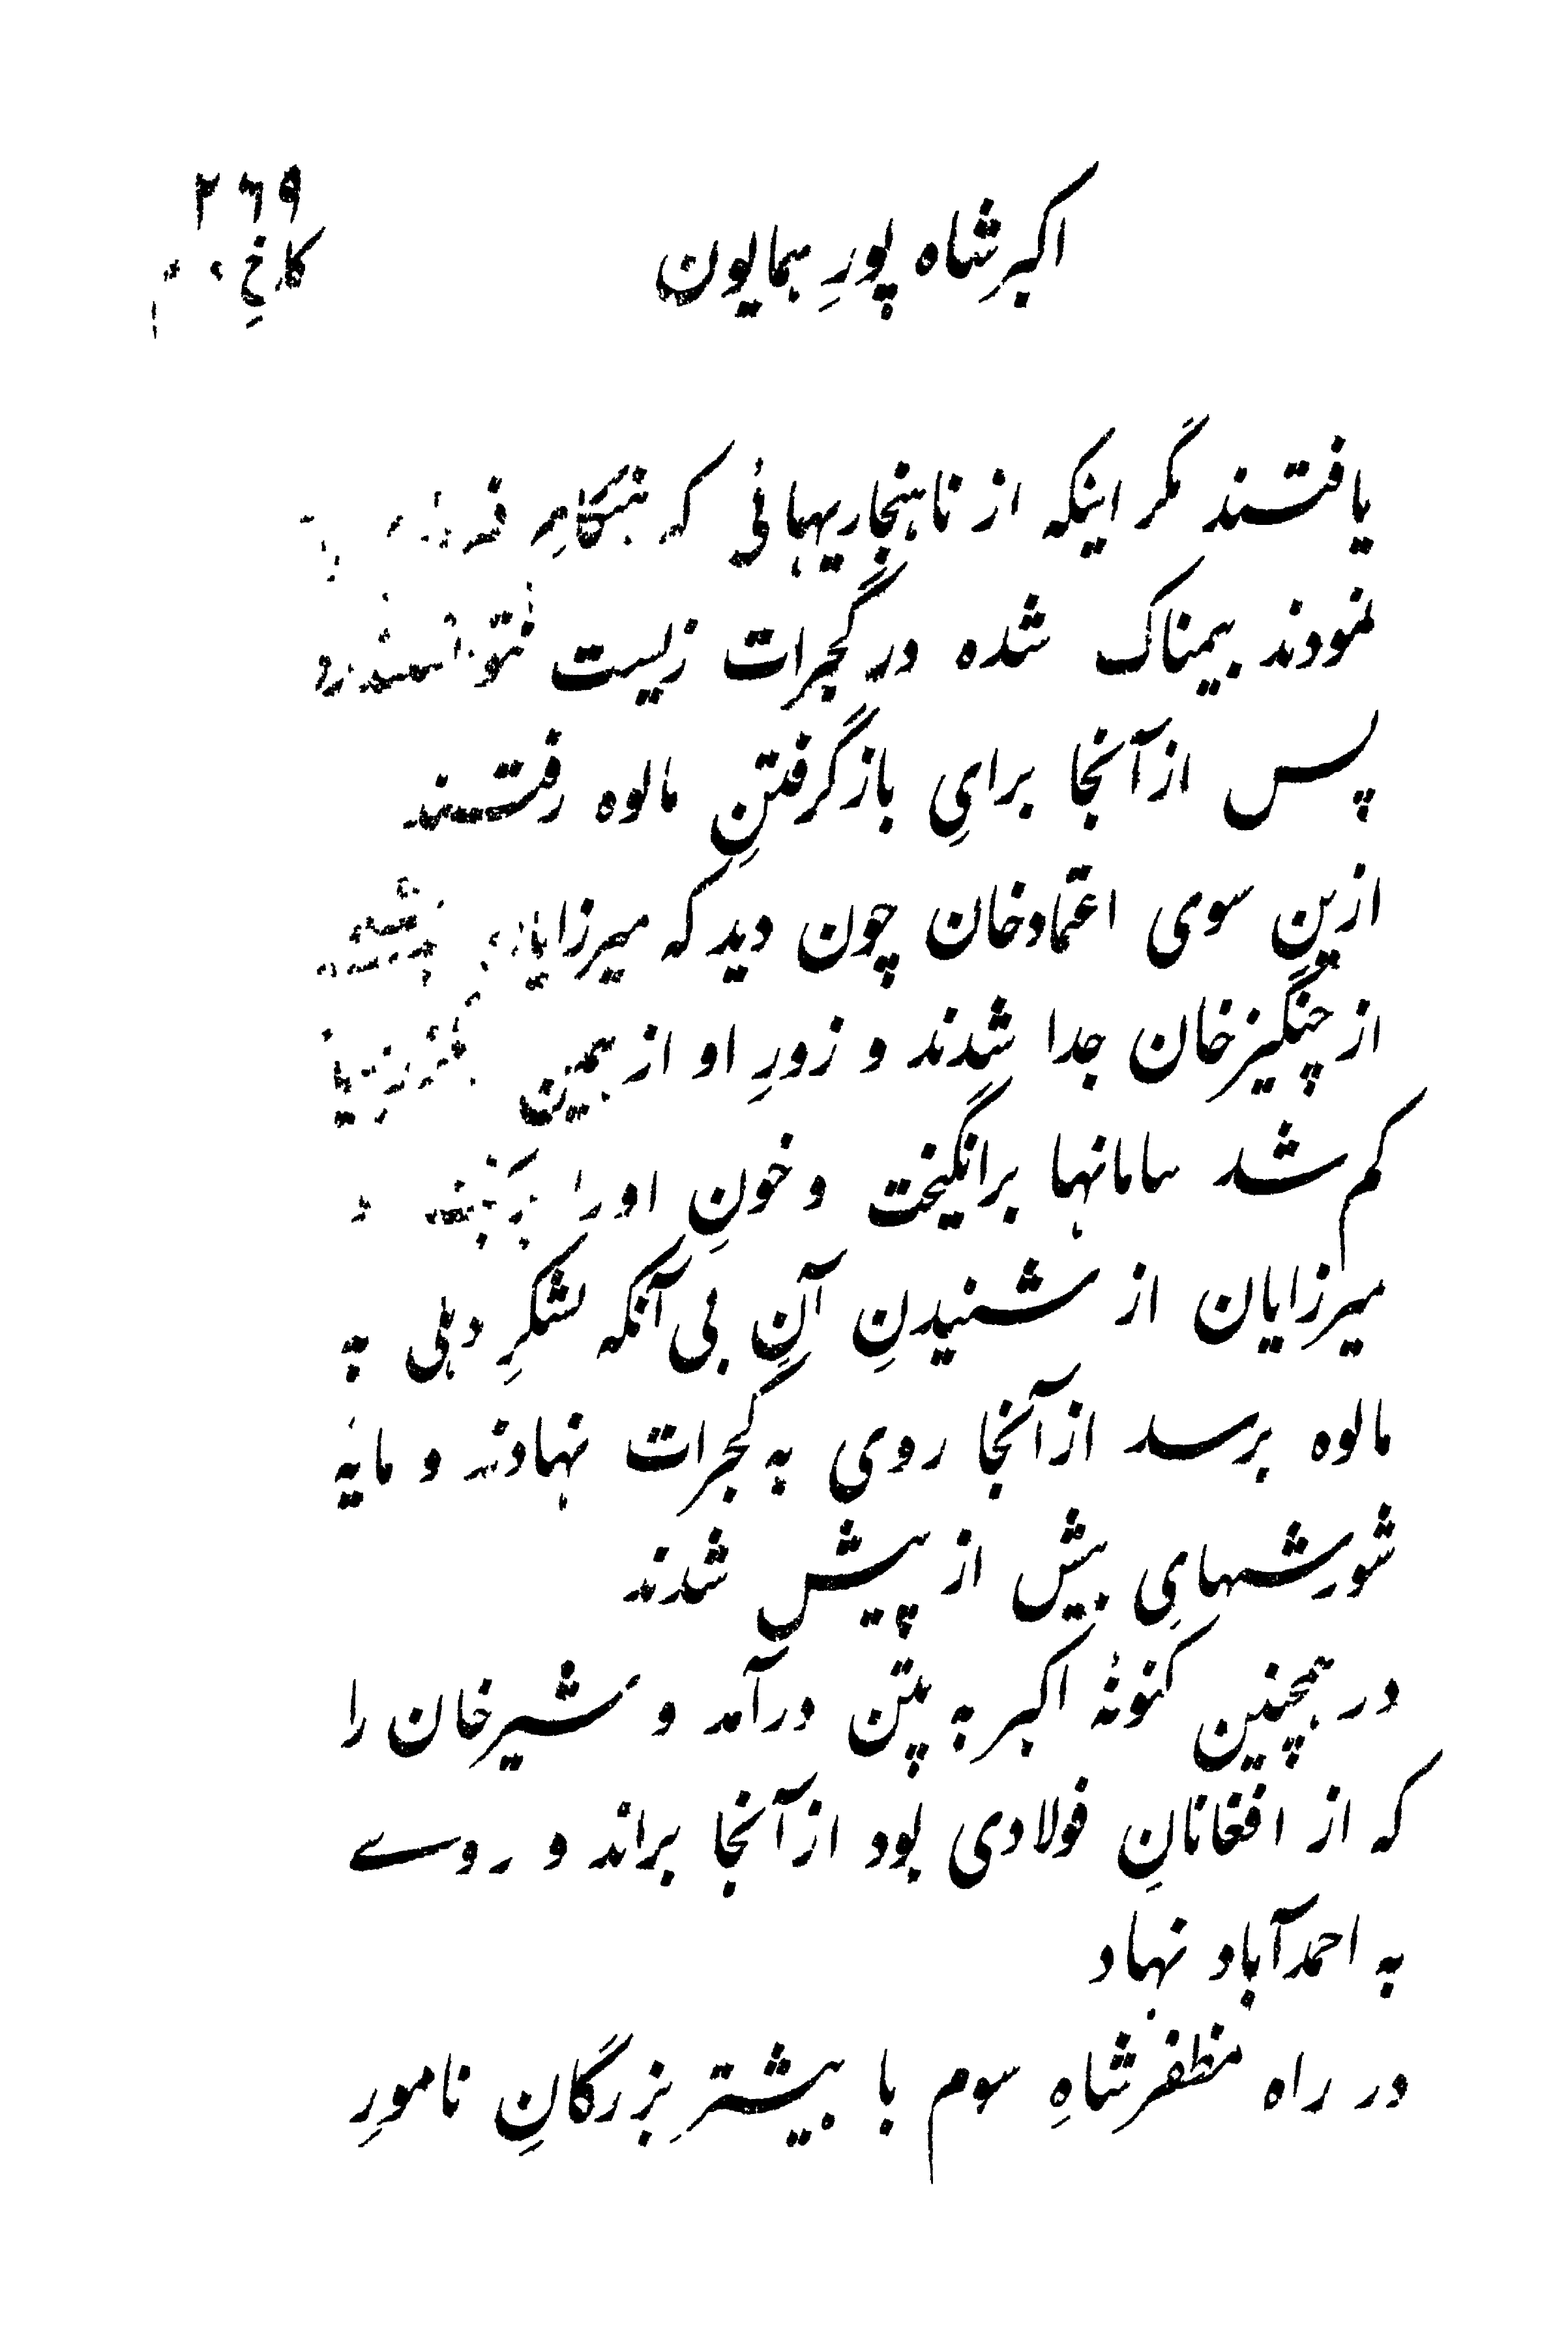 ۲۶۹
اکبر شاه پورِ همایون
کاخِ
یافتند مگر اینکه از ناهنجاریهائی که هنگامِ
نمودند بیمناک شده در گجرات زیست نتوانستند و
پس از آنجا برایِ بازگرفتنِ مالوه رفتند
ازین سوی اعتمادخان چون دید که میرزایان
از چنگیزخان جدا شدند و زورِ او از همین
کم شد سامانها برانگیخت و خونِ او را بریخت و
میرزایان از شنیدنِ آن بی آنکه لشکرِ دهلی به
مالوه برسد از آنجا روی به گجرات نهادند و مایهٔ
شورشهایِ بیش از پیش شدند
در همچنین کنونهٔ اکبر به پتن درآمد و شیرخان را
که از افغانانِ فولادی بود از آنجا براند و روے
به احمدآباد نهاد
در راه مظفرشاهِ سوم با بیشترِ بزرگانِ نامورِ